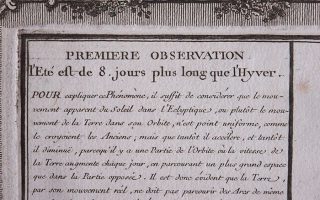 PREMIERE OBSERVATION
l'Eté est de 8. jours plus long que l'Hyver.
POUR expliquer ce Phénomène, il suffit de considérer que le mou-
vement apparent du Soleil dans l'Ecliptique, ou plutôt le mouve-
ment de la Terre dans son Orbite, n'est point uniforme, comme
le croyoient les Anciens; mais que tantôt il accélere, et tantôt
il diminue, parcequ'il y a une Partie de l'Orbite où la vitesse de
la Terre augmente chaque jour, en parcourant un plus grand espace
que dans la Partie opposée. Il est donc évident que la Terre,
par son mouvement réel, ne doit pas parcourir des Arcs de même